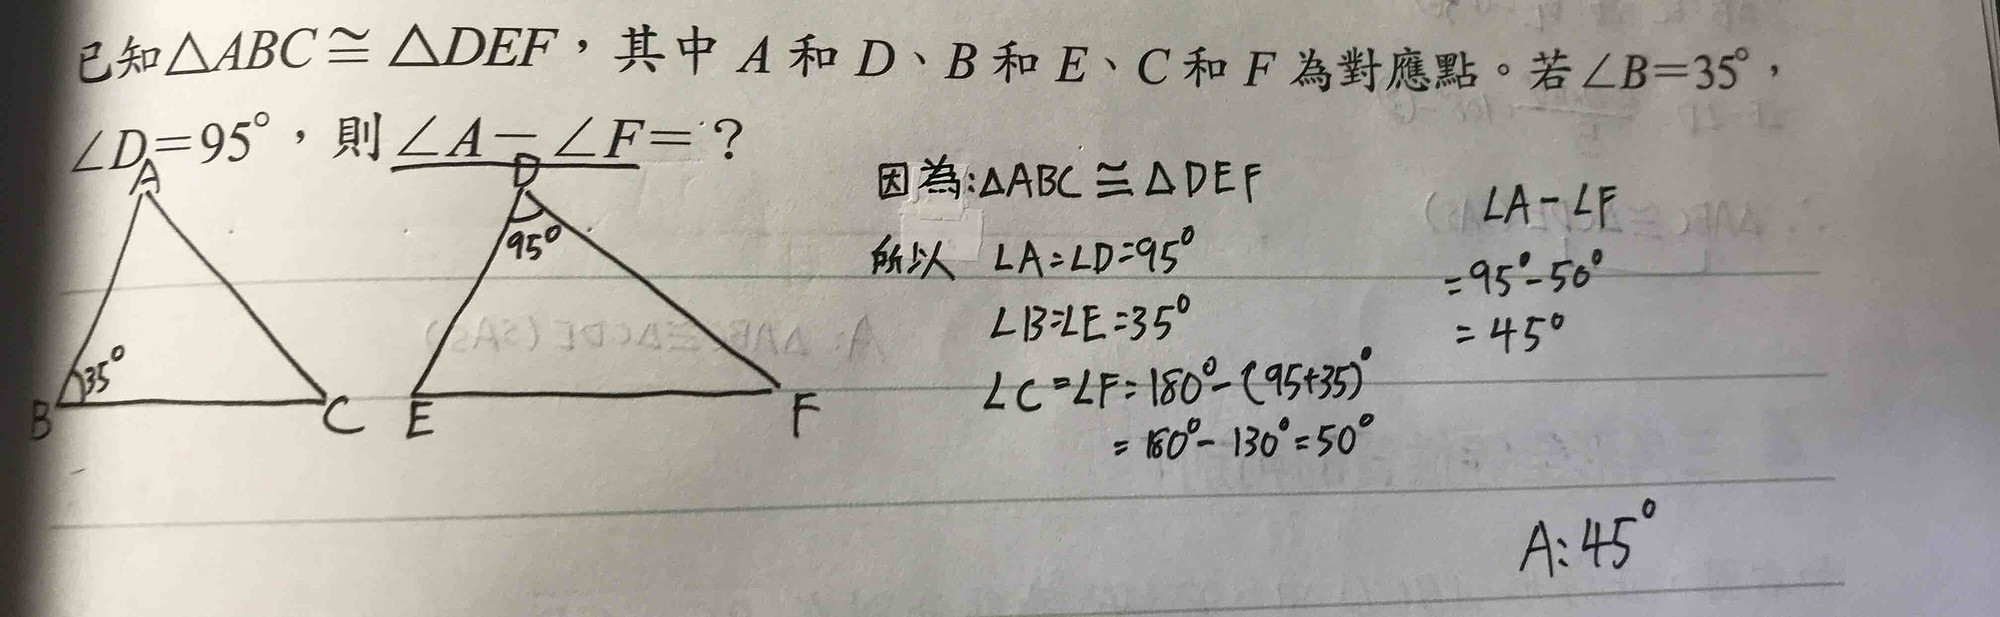 已知△ABC≅△DEF，其中 A 和 D、B 和 E、C 和 F 為對應點。若∠B=35°，
∠D=95°，則∠A−∠F=？
A
B
C
35°
D
E
F
95°
因為:△ABC≅△DEF
所以 ∠A=∠D=95°
∠B=∠E=35°
∠C=∠F=180°-(95+35)°
=180°-130°=50°
∠A-∠F
=95°-50°
=45°
A:45°